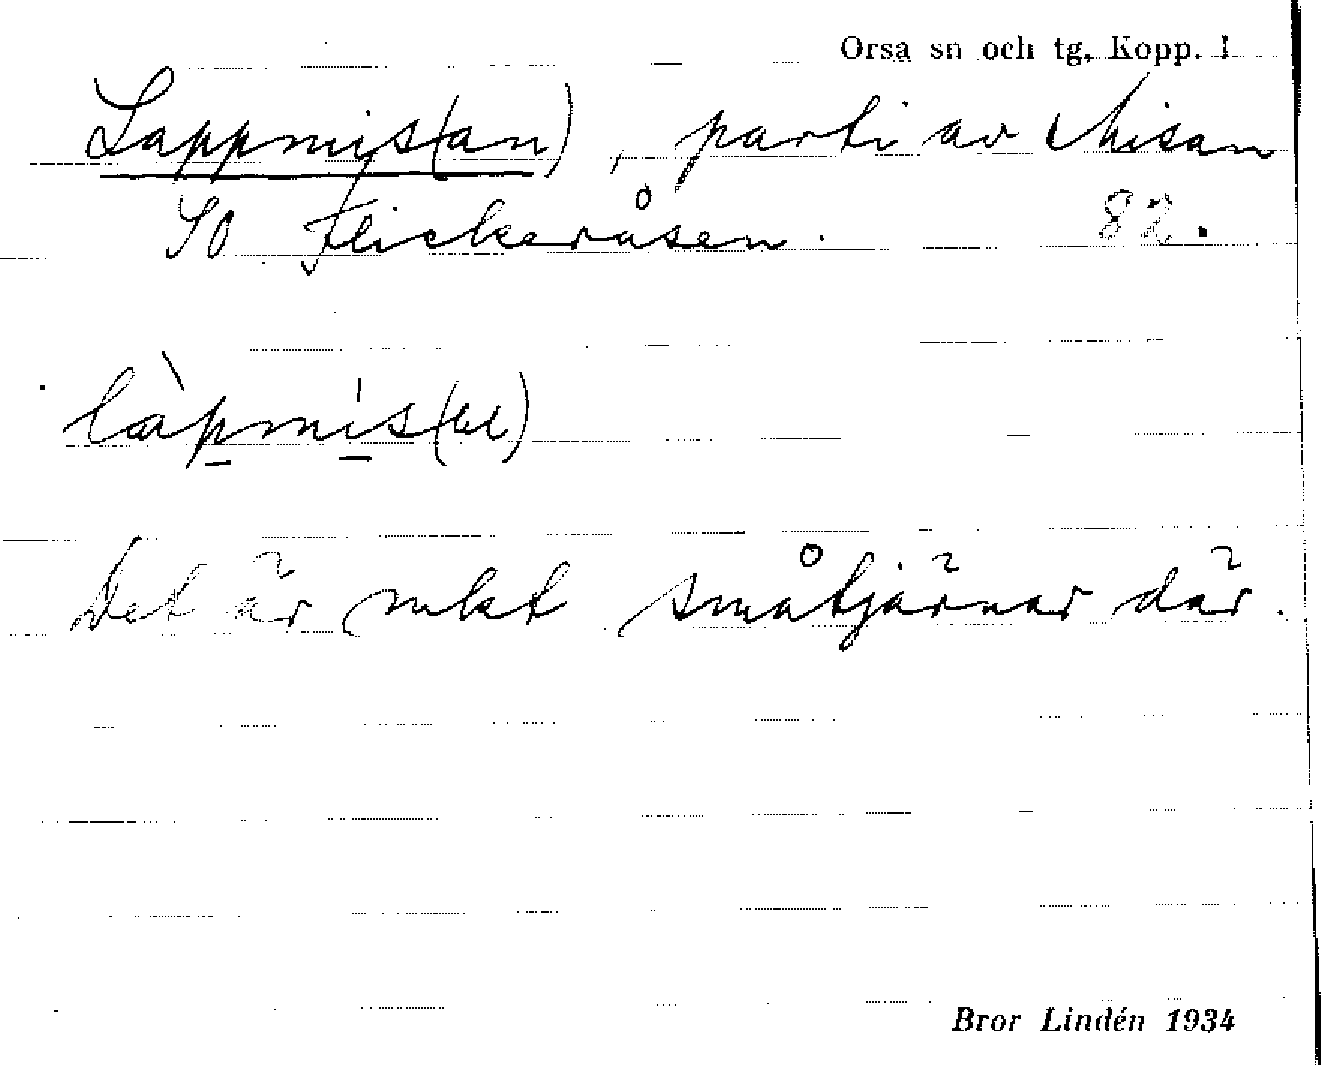 Orsa sn och tg, Kopp. l
Lappmis(an), parti av Misan
SO Flickeråsen. 82.
làpmis(
Det är mkt småtjärnar där.
Bror Lindén 1934